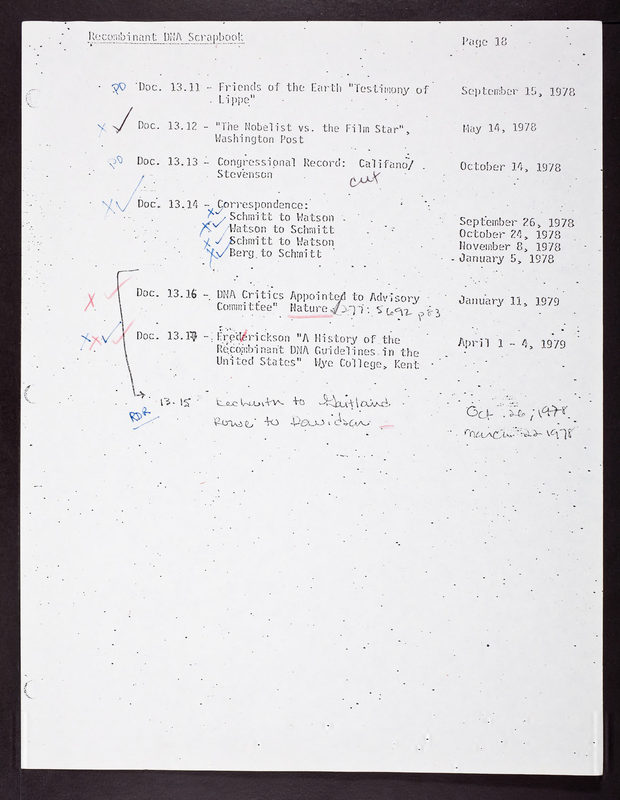 Recombinant DNA Scrapbook Page 18
PD Doc. 13.11 - Friends of the Earth "Testimony of September 15, 1978
Lippe"
x ✓ Doc. 13.12 - "The Nobelist vs. the Film Star", May 14, 1978
Washington Post
PD Doc. 13.13 - Congressional Record: Califano/ October 14, 1978
Stevenson cut
x ✓ Doc. 13.14 - Correspondence:
x ✓ Schmitt to Watson September 26, 1978
x ✓ Watson to Schmitt October 24, 1978
x ✓ Schmitt to Watson November 8, 1978
x ✓ Berg to Schmitt January 5, 1978
x ✓ Doc. 13.16 - DNA Critics Appointed to Advisory January 11, 1979
Committee" Nature 277: 5692 p83
x ✓ x ✓ Doc. 13.17 - Frederickson "A History of the April 1 - 4, 1979
Recombinant DNA Guidelines in the
United States" Wye College, Kent
13.15 to Oct. 26, 1978
RDR Rowe to Davidson March 22 1978